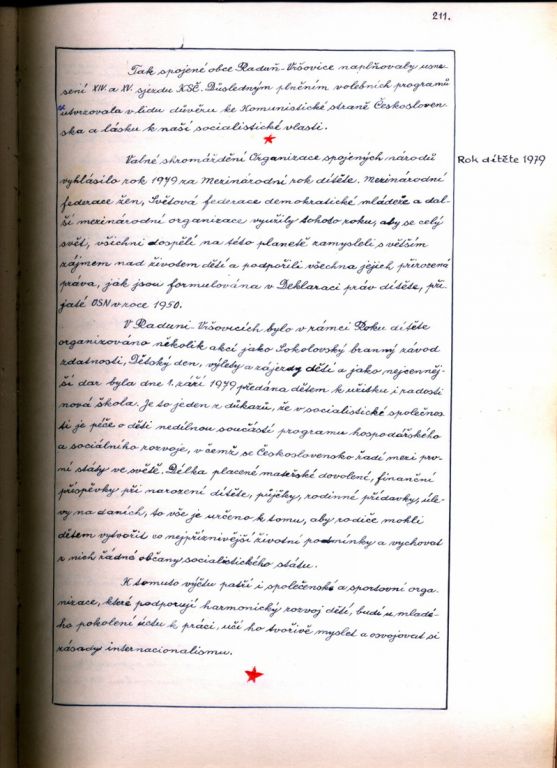 211.
Tak spojené obce Raduň-Vršovice naplňovaly usne-
sení XIV. a XV. sjezdu KSČ. Důsledným plněním volebních programů
utvrzovala v lidu důvěru ke Komunistické straně Českosloven-
ska a lásku k naší socialistické vlasti.
Rok dítěte 1979
Valné shromáždění Organizace spojených národů
vyhlásilo rok 1979 za Mezinárodní rok dítěte. Mezinárodní
federace žen, Světová federace demokratické mládeže a dal-
ší mezinárodní organizace využily tohoto roku, aby se celý
svět, všichni dospělí na této planetě zamysleli s větším
zájmem nad životem dětí a podpořili všechna jejich přirozená
práva, jak jsou formulována v Deklaraci práv dítěte, při-
jaté OSN v roce 1950.
V Raduni-Vršovicích bylo v rámci Roku dítěte
organizováno několik akcí jako Sokolovský branný závod
zdatnosti, Dětský den, výlety a zájezdy dětí a jako nejcenněj-
ší dar byla dne 1. září 1979 předána dětem k užitku i radosti
nová škola. Je to jeden z důkazů, že v socialistické společnos-
ti je péče o děti nedílnou součástí programu hospodářského
a sociálního rozvoje, v čemž se Československo řadí mezi prv-
ní státy ve světě. Délka placené mateřské dovolení, finanční
příspěvky při narození dítěte, půjčky, rodinné přídavky, úle-
vy na daních, to vše je určeno k tomu, aby rodiče mohli
dětem vytvořit co nejpříznivější životní podmínky a vychovat
z nich řádné občany socialistického státu.
K tomuto výčtu patří i společenské a sportovní orga-
nizace, které podporují harmonický rozvoj dětí, budí u mladé-
ho pokolení úctu k práci, učí ho tvořivě myslet a osvojovat si
zásady internacionalismu.